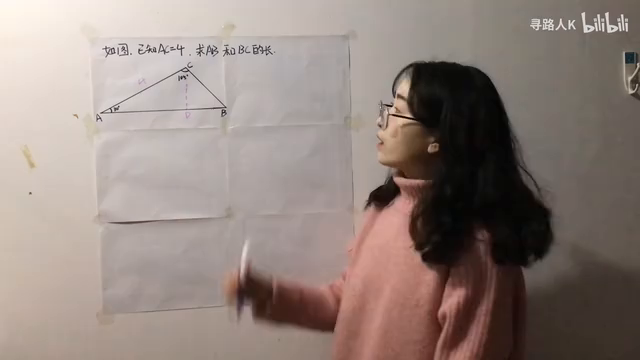 寻路人K bilibili
如图，已知AC=4，求AB和BC的长.
C
105°
A
B
D